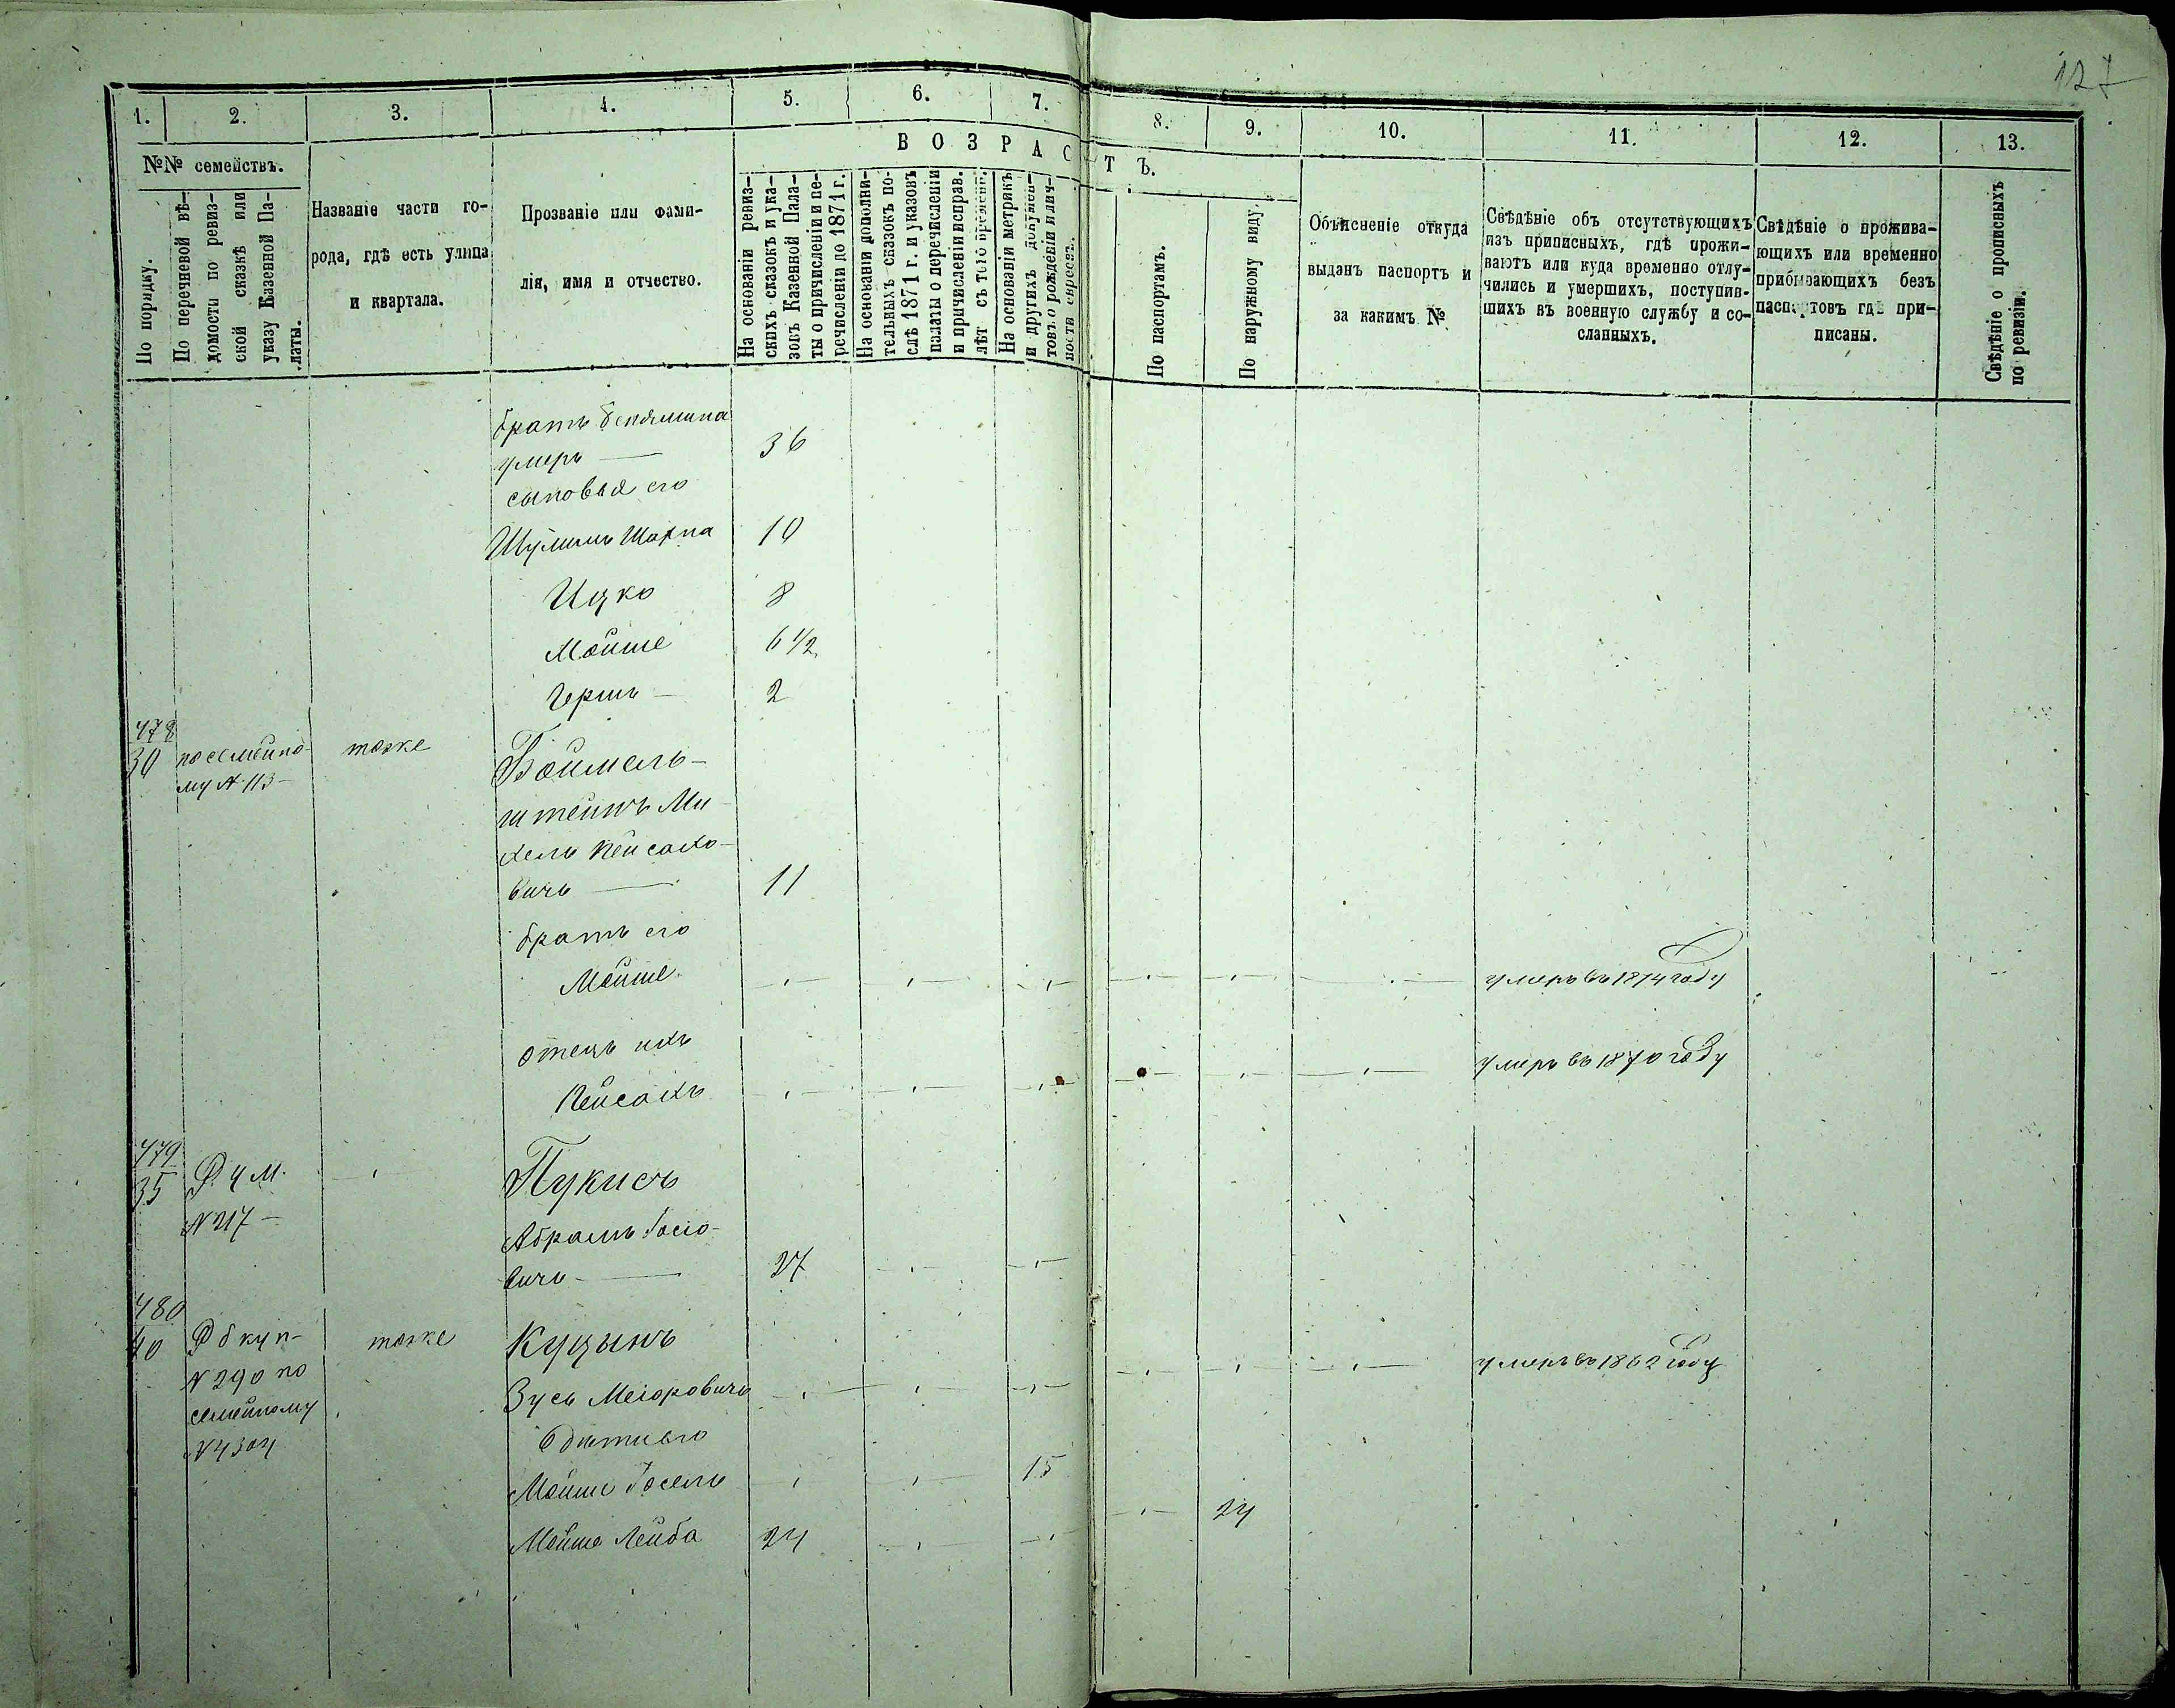 127
1.
2.
3.
4.
5.
6.
7.
8.
9.
10.
11.
12.
13.
№№ семействъ.
По порядку.
По перечневой вѣ-
домости по ревиз-
ской сказкѣ или
указу Казенной Па-
латы.
Названіе части го-
рода, гдѣ есть улица
и квартала.
Прозваніе или фами-
лія, имя и отчество.
ВОЗРАСТЪ.
На основаніи ревиз-
скихъ сказокъ и ука-
зовъ Казенной Пала-
ты о причисленіи и пе-
речисленіи до 1871 г.
На основаніи дополни-
тельныхъ сказокъ по-
слѣ 1871 г. и указовъ
палаты о перечисленіи
и причисленіи исправ.
лѣт съ того времени.
На основаніи метрикъ
и другихъ докумен-
товъ о рожденіи и лич-
ности
По паспортамъ.
По наружному виду.
Объясненіе откуда
выданъ паспортъ и
за какимъ №
Свѣдѣніе объ отсутствующихъ
изъ приписныхъ, гдѣ прожи-
ваютъ или куда временно отлу-
чились и умершихъ, поступив-
шихъ въ военную службу и со-
сланныхъ.
Свѣдѣніе о прожива-
ющихъ или временно
прибывающихъ безъ
паспортовъ гдѣ при-
писаны.
Свѣдѣніе о прописныхъ
по ревизіи.
братъ Беньямина
умеръ — 36
сыновья его
Шулимъ Шахна 10
Ицко 8
Мойше 6 1/2
Гершъ — 2
478
30 по семейно- тоже Боймель-
му № 113 —
штейнъ Ми-
хель Пейсахо-
вичъ — 11
братъ его
Мойше умеръ въ 1874 году
отецъ ихъ умеръ въ 1870 году
Пейсахъ
479
35 Р ч м. Пукисъ
№ 217 —
Абрамъ Іосіо-
вичъ — 27
480
40 Р б куп- тоже Куцынъ умеръ въ 1862 году
№ 290 по Зусь Меіоровичъ
семейному
№ 4304
Мойше Іосель 15
Мойше Лейба 24 24